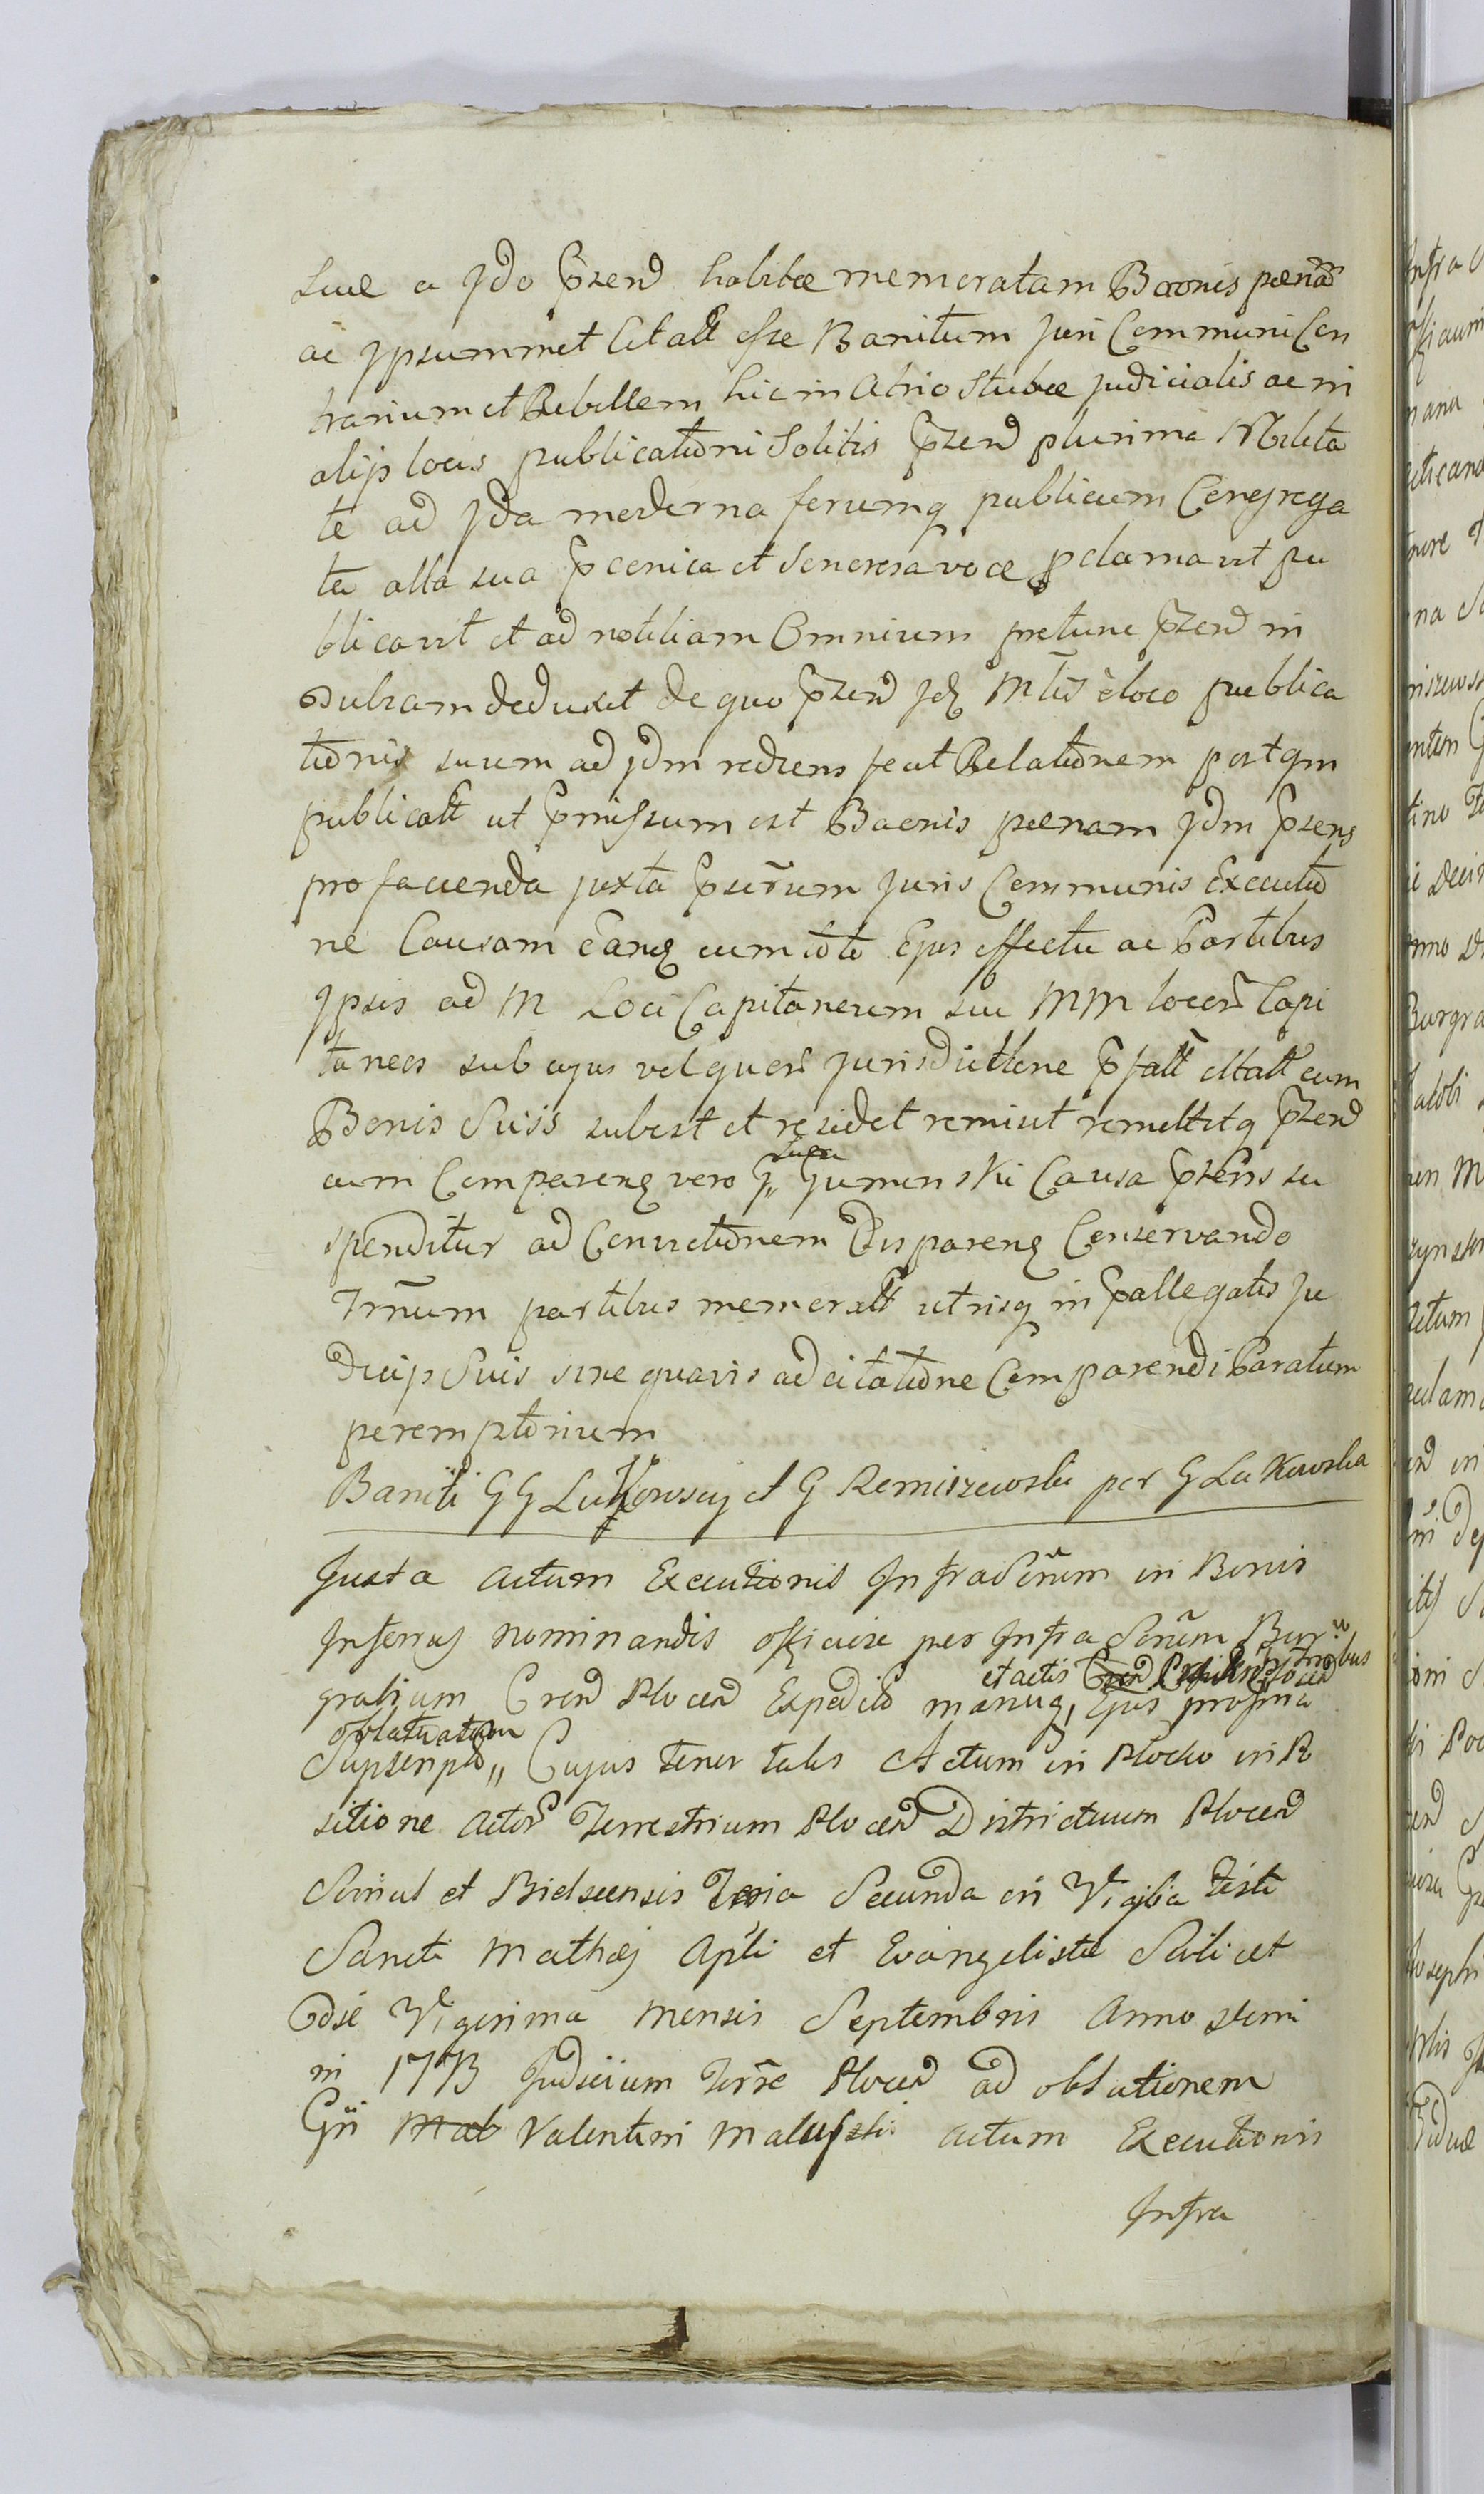 suae a Jdo Pzend habitae memoratam Baonis paenã
ac Ipsummet Citatt esse Banitum juri Communi Con
trarium et Rebellem hic in Atrio Stubae judicialis ac in
alijs locis publicationi Solitis Pzend plurima Nobilita
te ad Jda moderna forumq publicum Congrega
ta alta sua Pconica et Sonorosa voce pclamavit pu
blicavit et ad notitiam Omnium pretunc Pzend in
dubiam deduxit de quo Pzend Jdz Mtis e loco publica
tionis suum ad Jdm rediens fecit Relationem post qm
publicatt ut Pmissum est Baonis paenam Jdm Pzens
pro facienda juxta Pscrum juris Communis Executio
ne Causam Eanq cum toto Ejus effectu ac Partibus
Ipsis ad M Loci Capitaneum seu MM locor Capi
taneos sub cujus vel quor jurisdictione Pfatt citatt cum
Bonis Suis subest et residet remisit remittitq Pzend
cum Comparenq vero G Guminski Causa Pzens su
spenditur ad Convictionem Disparenq Conservando
Trnum partibus memoratt utrisq in Pallegatis Ju
dicijs Suis sine quavis adcitatione Comparendi Paratum
peremptorium
Baniti GG Lukowscy et G Remiszewski per G Lukowska
Juxta actum Executionis Infra Scrum in Bonis
Inferius nominandis officiose per Infra Scrum Bur
grabium Cren Plocen Expedito manuq Ejus propria
et actis
oblatu
Supscripto Cujus tenor talis Actum in Plocko in R
sitione Actor Terrestrium Plocen Districtuum Plocen
Simul et Bielscensis Feria Secunda in Vigilia Festi
Sancti Mathaei Apli et Evangelistae Scilicet
die Vigesima Mensis Septembris Anno Dmi
ni 1773 Judicium Terre Plocen ad oblationem
Gii Mal Valentini Maluski actum Executionis
Infra